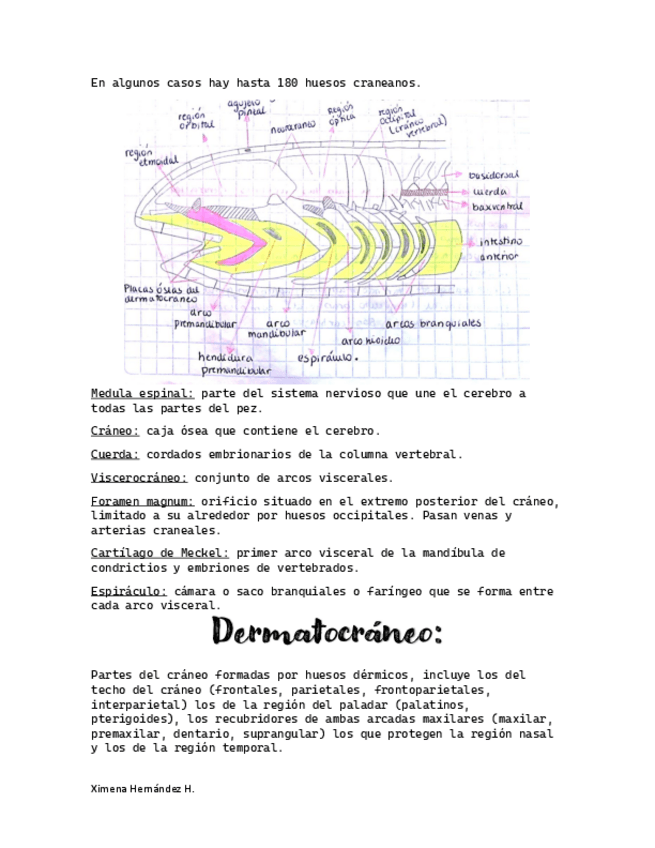 En algunos casos hay hasta 180 huesos craneanos.
agujero
pineal
región
orbital
neurocraneo
Región
óptica
región
occipital
(cráneo
vertebral)
región
etmoidal
basidorsal
cuerda
baxventral
intestino
anterior
Placas óseas del
dermatocraneo
arco
premandibular
arco
mandibular
arcos branquiales
arco hioideo
hendidura
premandibular
espiráculo.
Medula espinal: parte del sistema nervioso que une el cerebro a
todas las partes del pez.
Cráneo: caja ósea que contiene el cerebro.
Cuerda: cordados embrionarios de la columna vertebral.
Viscerocráneo: conjunto de arcos viscerales.
Foramen magnum: orificio situado en el extremo posterior del cráneo,
limitado a su alrededor por huesos occipitales. Pasan venas y
arterias craneales.
Cartílago de Meckel: primer arco visceral de la mandíbula de
condrictios y embriones de vertebrados.
Espiráculo: cámara o saco branquiales o faríngeo que se forma entre
cada arco visceral.
Dermatocráneo:
Partes del cráneo formadas por huesos dérmicos, incluye los del
techo del cráneo (frontales, parietales, frontoparietales,
interparietal) los de la región del paladar (palatinos,
pterigoides), los recubridores de ambas arcadas maxilares (maxilar,
premaxilar, dentario, suprangular) los que protegen la región nasal
y los de la región temporal.
Ximena Hernández H.